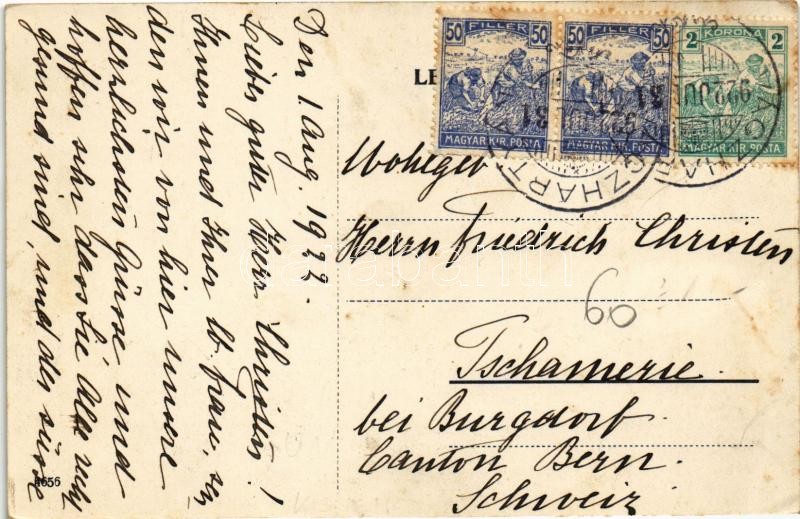 Den 1. Aug. 1922.
Lieber guter Herr Christen!
Ihnen und Ihrer lb. Frau, sen
den wir von hier unsere
herzlichsten Grüsse und
hoffen sehr dass Sie Alle recht
gesund sind, und der süsse
4656
50 FILLÉR 50
MAGYAR KIR. POSTA
50 FILLÉR 50
MAGYAR KIR. POSTA
2 KORONA 2
MAGYAR KIR. POSTA
LE
Wohlgeb
Herrn Friedrich Christen
Tschamerie
bei Burgdorf.
Canton Bern.
Schweiz